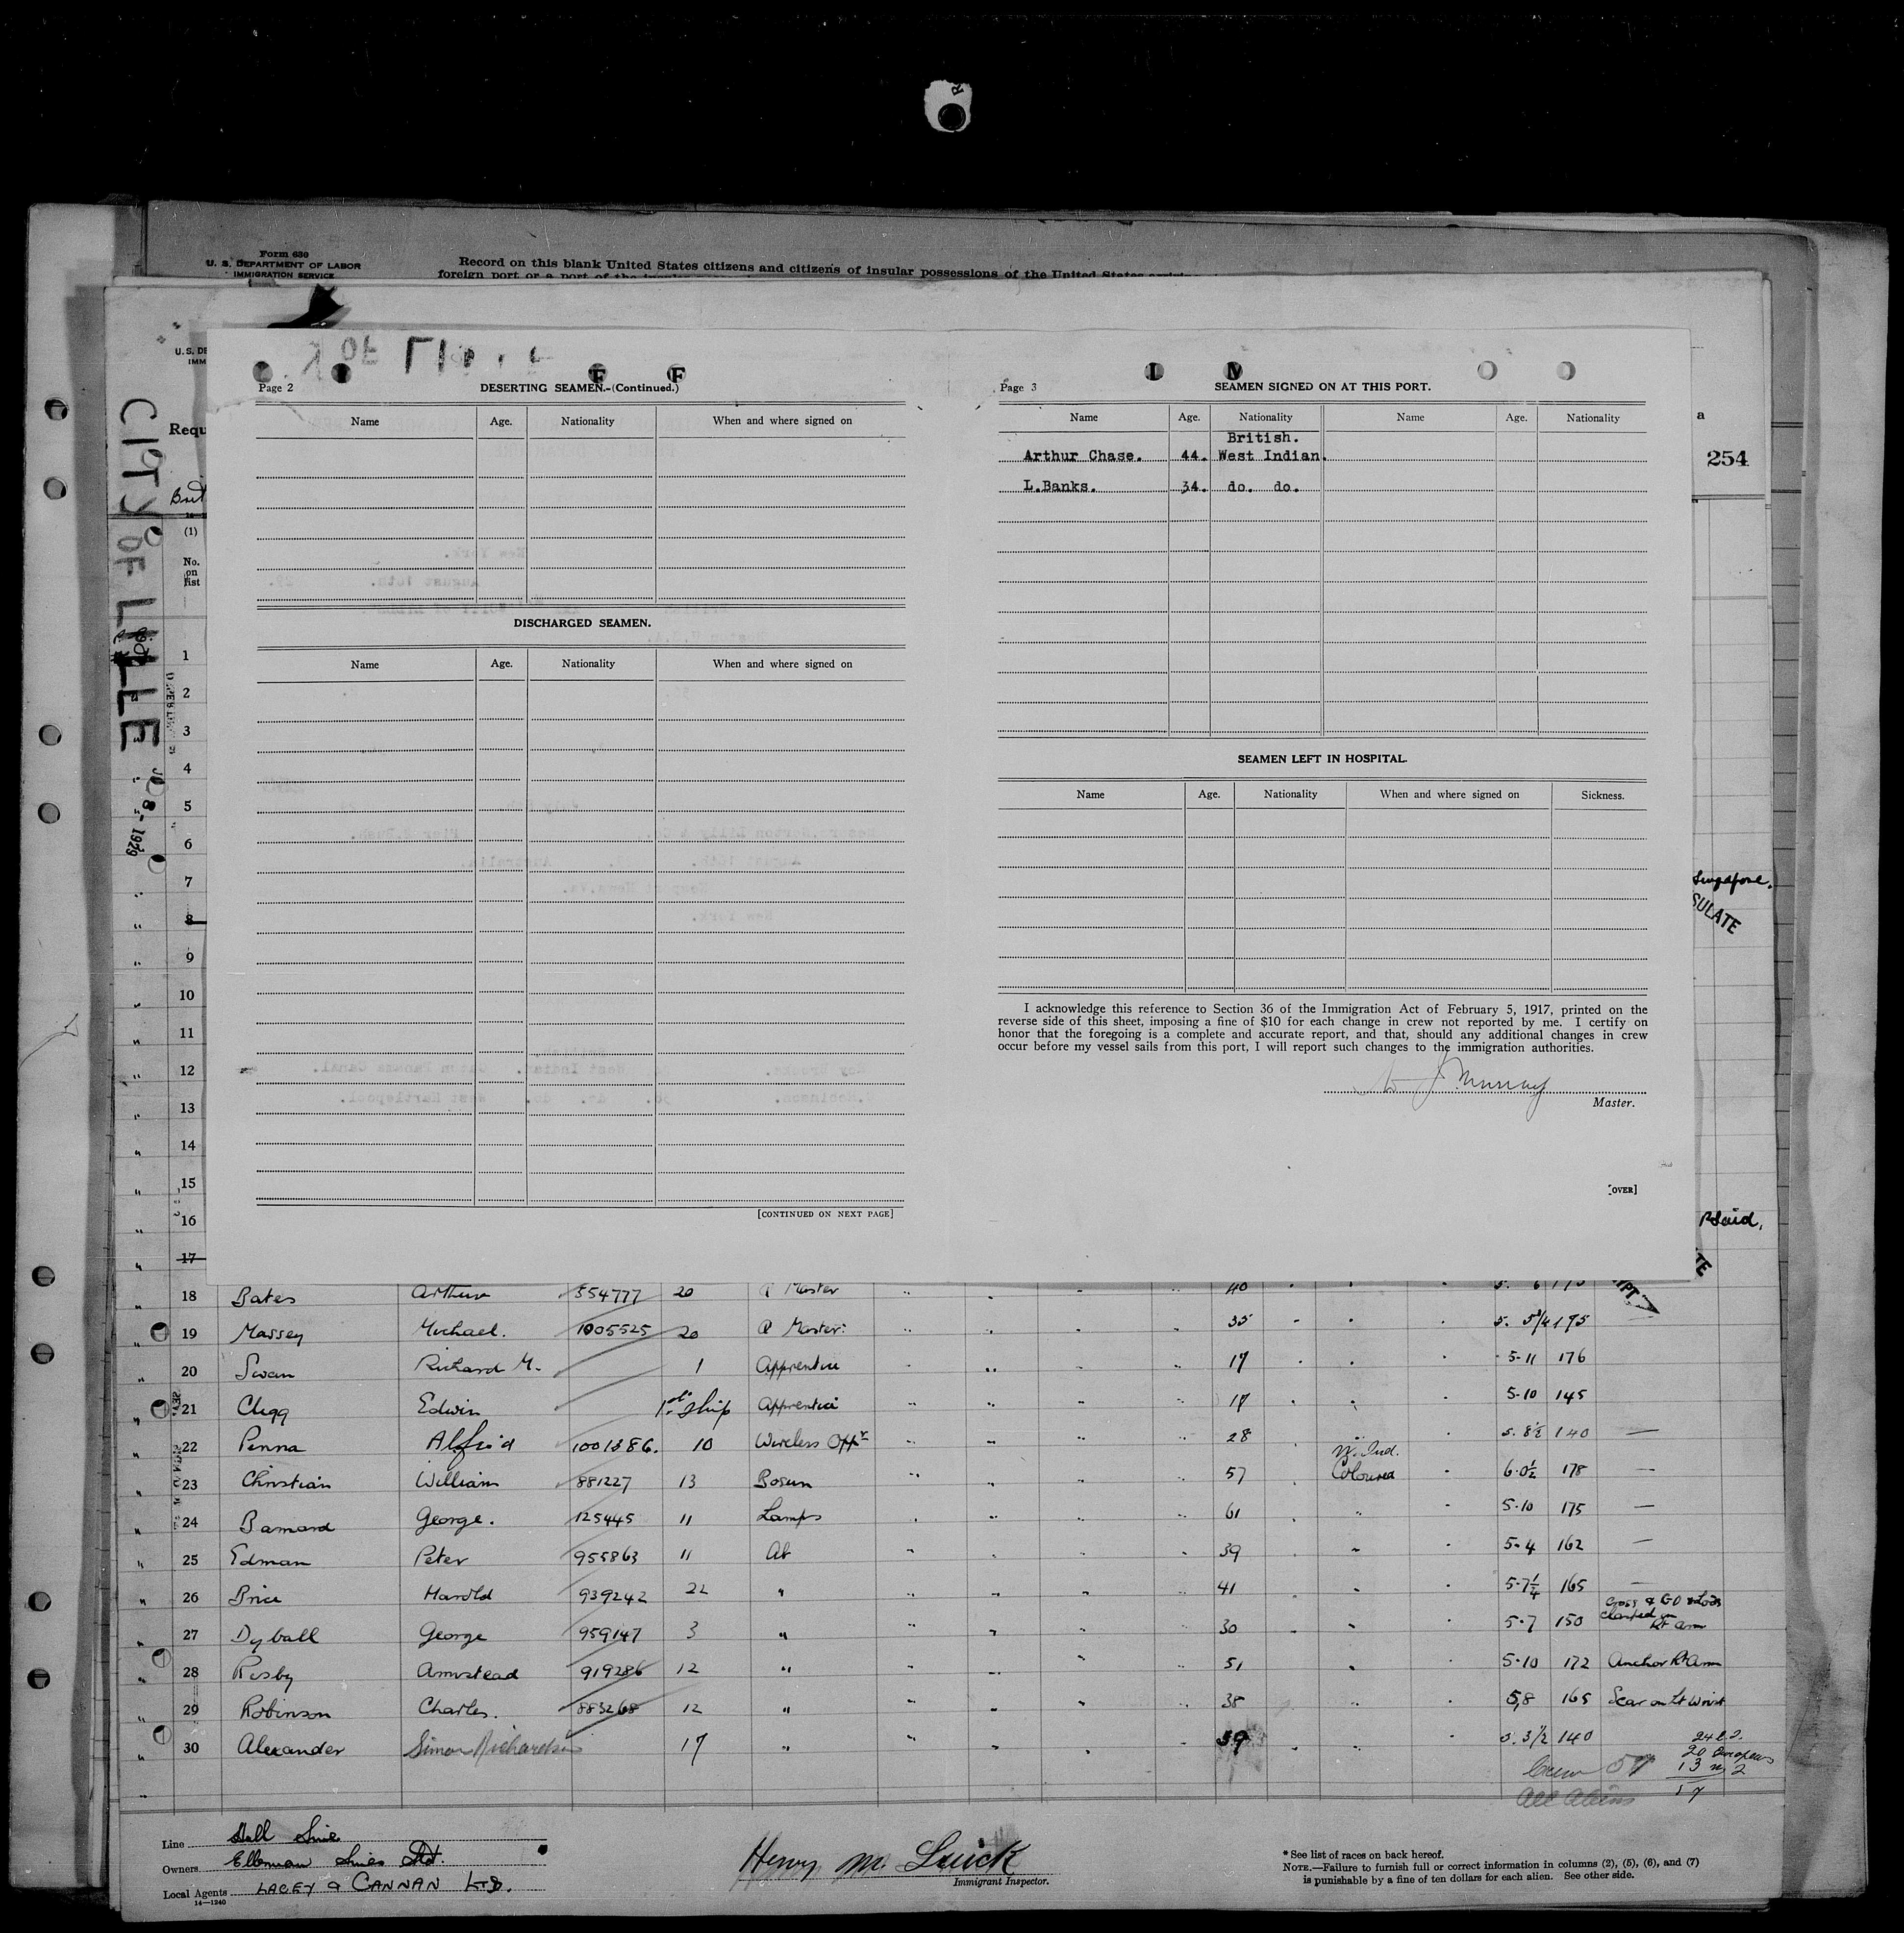 Form 680
U. S. DEPARTMENT OF LABOR
IMMIGRATION SERVICE
Record on this blank United States citizens and citizens of insular possessions of the United States
foreign port or a port of the
U. S. DE
IMM
Requ
Brit
(1)
No. on list
CITY OF LILLE
8 - 1929
a
254
Page 2
DESERTING SEAMEN.-(Continued.)
Name Age. Nationality When and where signed on
DISCHARGED SEAMEN.
Name Age. Nationality When and where signed on
[CONTINUED ON NEXT PAGE]
F F L M
Page 3
SEAMEN SIGNED ON AT THIS PORT.
Name Age. Nationality Name Age. Nationality
British.
Arthur Chase. 44. West Indian.
L.Banks. 34. do. do.
SEAMEN LEFT IN HOSPITAL.
Name Age. Nationality When and where signed on Sickness.
I acknowledge this reference to Section 36 of the Immigration Act of February 5, 1917, printed on the
reverse side of this sheet, imposing a fine of $10 for each change in crew not reported by me. I certify on
honor that the foregoing is a complete and accurate report, and that, should any additional changes in crew
occur before my vessel sails from this port, I will report such changes to the immigration authorities.
Murray
Master.
[OVER]
Singapore.
SULATE
P Said,
1
2
3
4
5
6
7
8
9
10
11
12
13
14
15
16
17
18 Bates Arthur 554777 20 Q Master 40
19 Massey Michael. 1005525 20 Q Master 35
20 Swan Richard M. 1 Apprentice 17 5-11 176
21 Clegg Edwin 1st Ship Apprentice 17 5-10 145
22 Penna Alfred 10 Wireless Oppr 28 5. 8½ 140 —
W. Ind.
23 Christian William 881227 13 Bosun 57 Coloured 6-0½ 178 —
24 Barnard George. 125445 11 Lamps 61 " 5-10 175 —
25 Edman Peter 955863 11 Ab 39 " 5-4 162 —
26 Brice Harold 939242 22 " 41 " 5-7¼ 165 —
27 Dyball George 959147 3 " 30 " 5-7 150 Rt arm
28 Risby Armstead 919286 12 " 51 " 5-10 172 Anchor Rt Arm
29 Robinson Charles. 883268 12 " 38 " 5,8 165 Scar on Lt Wrist
30 Alexander Simon Richardson 17 " 59 " 5. 3½ 140
20 Europeans
13
Crew 57
57
All Aliens
Line Hall Line
Owners Ellerman Lines Ltd.
Local Agents LACEY & CANNAN LTD.
14—1240
Henry M. Luick
Immigrant Inspector.
* See list of races on back hereof.
NOTE.—Failure to furnish full or correct information in columns (2), (5), (6), and (7)
is punishable by a fine of ten dollars for each alien. See other side.